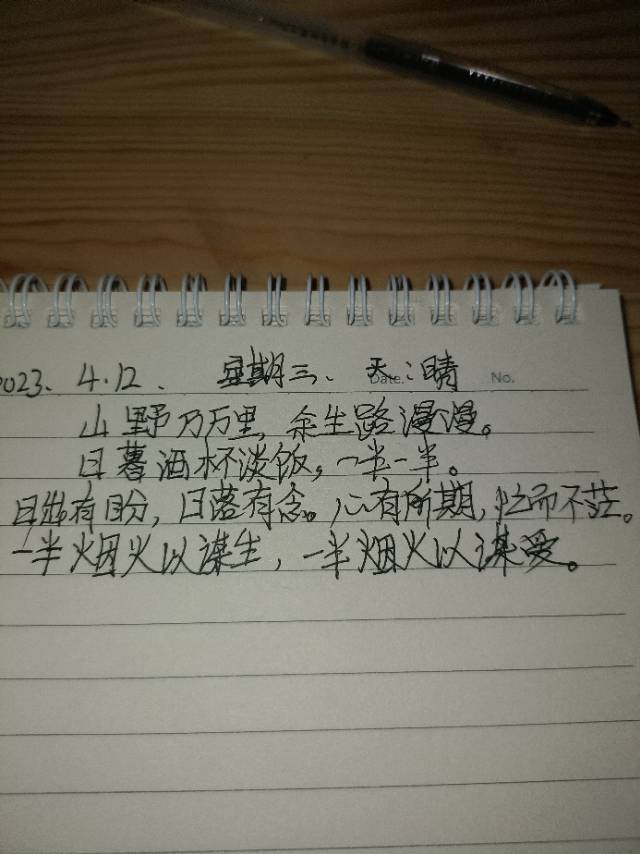 2023. 4.12. 星期三、天:晴
Date. No.
山野乃万里,余生路漫漫。
日暮酒杯淡饭,一半一半。
日出有盼,日落有念。心有所期,忙而不茫。
一半烟火以谋生,一半烟火以谋爱。